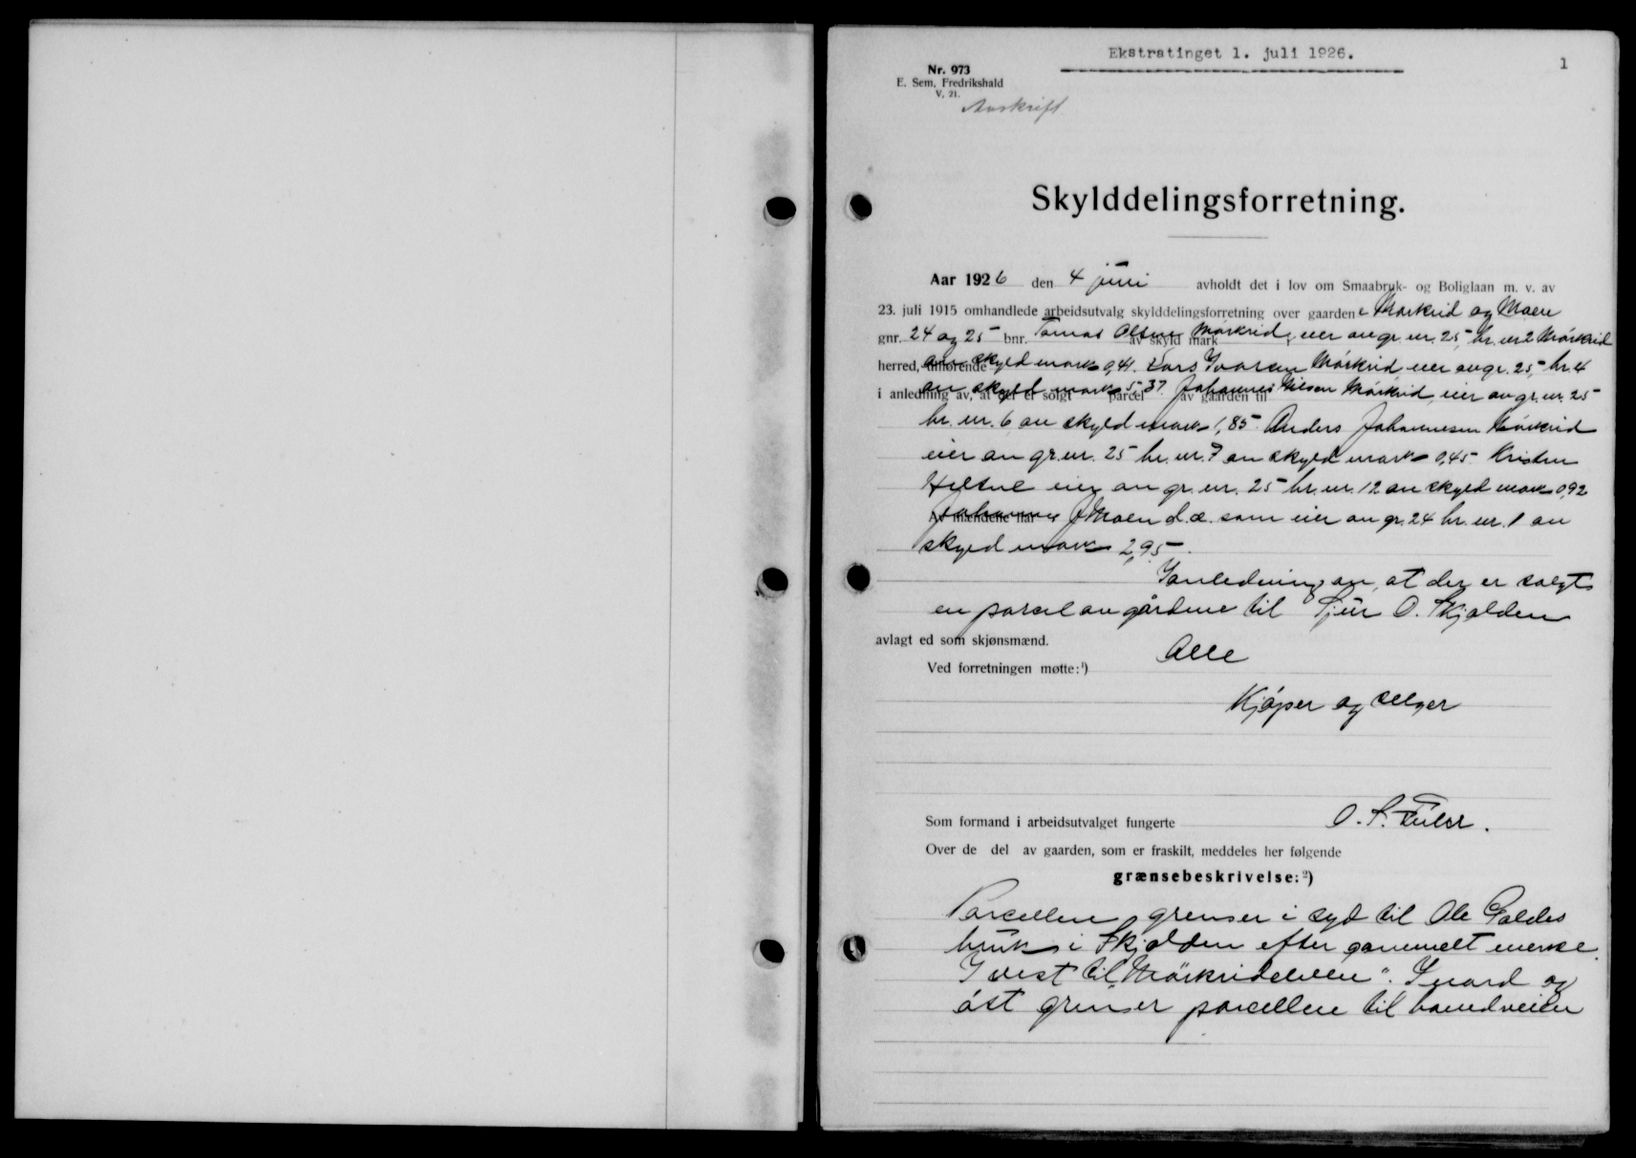 Ekstratinget 1. juli 1926.
1
Nr. 973
E. Sem, Fredrikshald
V. 21.
Avskrift
Skylddelingsforretning.
Aar 1926 den 4 juni avholdt det i lov om Smaabruk- og Boliglaan m. v. av
23. juli 1915 omhandlede arbeidsutvalg skylddelingsforretning over gaardene Mørkrid og Moen
gnr. 24 og 25 bnr. Tomas Olsen Mørkrid, eier av gr. nr. 25, br. nr 2 Mørkrid
herred, av skyld mark 0,41. Lars Ivarsen Mørkrid eier av gr. 25, br. 4
i anledning av, at der er solgt parcel av gaarden til av skyld mark 5.37 Johannes Nilsen Mørkrid, eier av gr. nr. 25
br. nr. 6 av skyld mark 1,85 Anders Johannesen Mørkrid
eier av gr. nr. 25 br. nr. 7 av skyld mark 0,45 Kristen
eier av gr. nr. 25 br. nr. 12 av skyld mark 0,92
Av mændene har Johannes J Moen d. æ. som eier av gr. 24 br. nr. 1 av
skyld mark 2,95.
I anledning av, at der er solgt
en parcel av gårdene til Sjur O. Skjolden
avlagt ed som skjønsmænd. Alle
Ved forretningen møtte:¹)
Kjøper og selger
Som formand i arbeidsutvalget fungerte O. S.
Over de del av gaarden, som er fraskilt, meddeles her følgende
grænsebeskrivelse:²)
Parcellen grenser i syd til Ole Galdes
bruk i Skjolden efter gammelt merke.
I vest til "Mørkridelven". I nord og
øst grenser parcellen til hovedveien